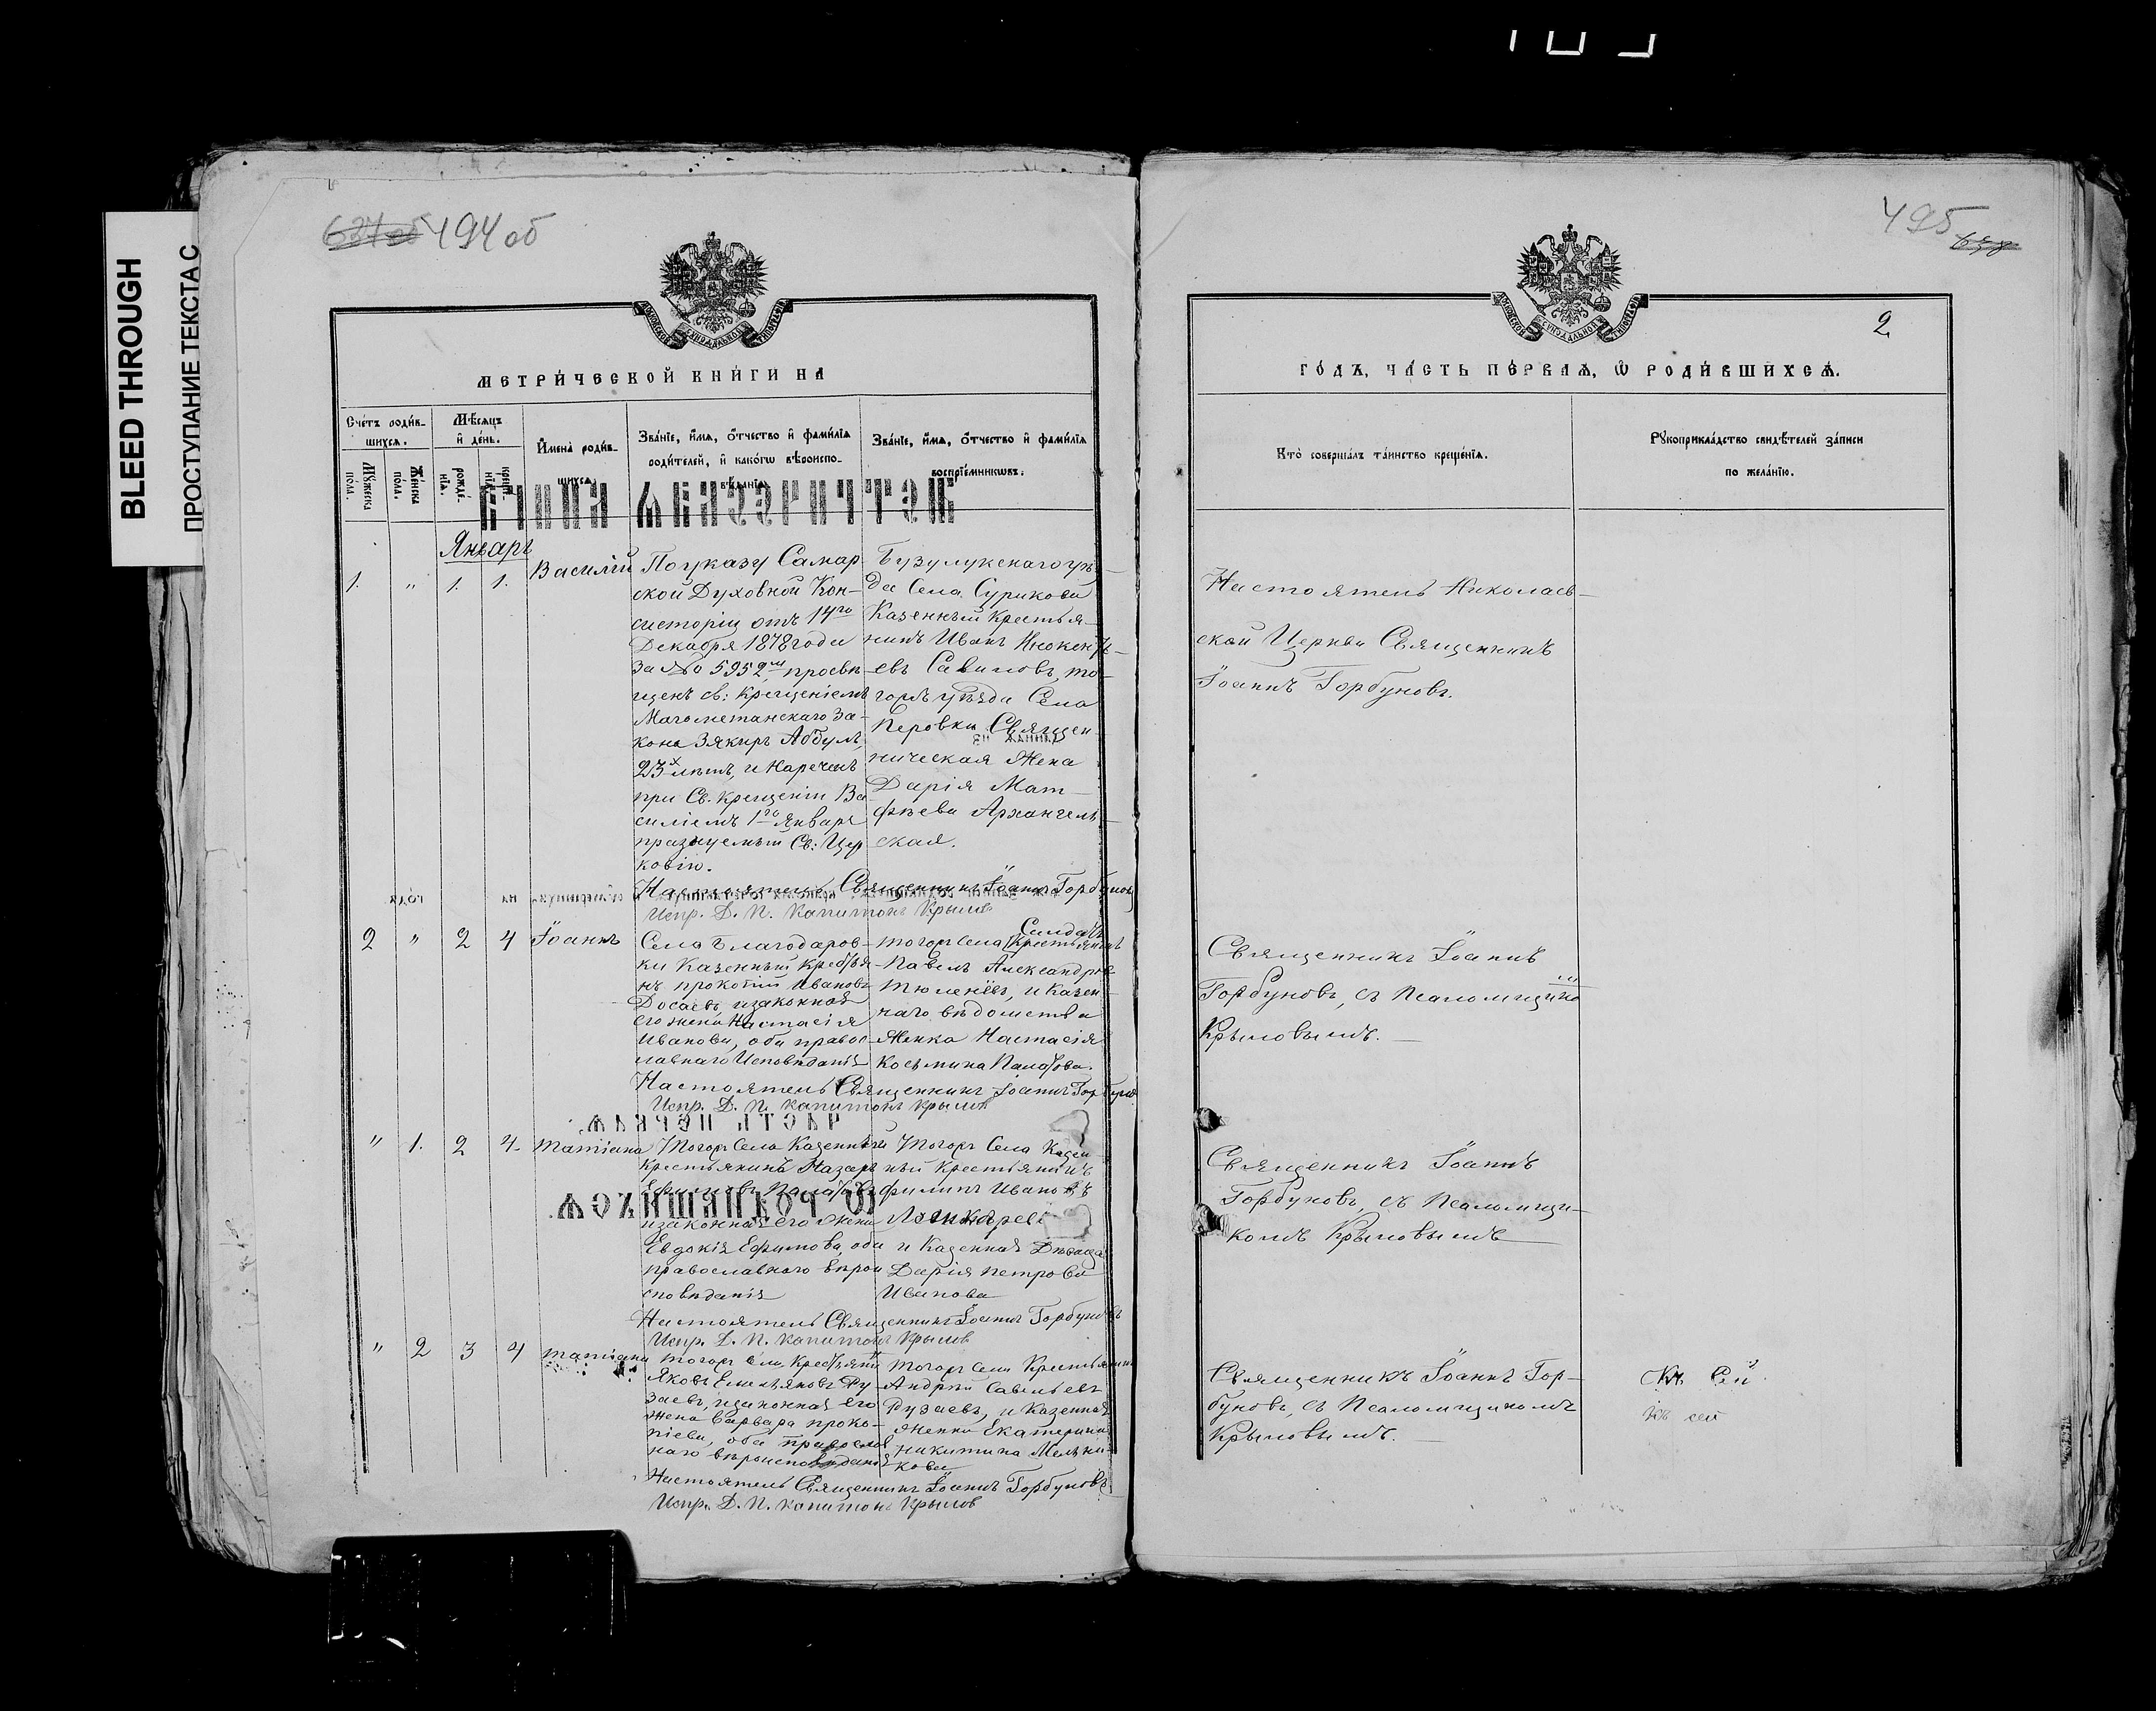 BLEED THROUGH
ПРОСТУПАНИЕ ТЕКСТА С
494 об
МЕТРИ́ЧЕСКОЙ КНИ́ГИ НА
Сче́тъ роди́в-
шихся.
Мѣ́сяцъ
и҆ де́нь.
И҆мена̀ роди́в-
шихся.
Зва́нїе, и҆́мя, ѻ҆́тчество и҆ фамѝлїя
роди́телей, и҆ како́гѡ вѣроиспо-
вѣ́данїя.
Зва́нїе, и҆́мя, ѻ҆́тчество и҆ фамѝлїя
воспрїе́мникѡвъ.
Мꙋ́жеска
по́ла.
Же́нска
по́ла.
рожде́-
нїѧ.
креще́-
нїѧ.
Январь
1. " 1. 1. Василій
По указу Самар
ской Духовной Кон-
систоріи отъ 14го
Декабря 1878 года
за № 5952м, просвѣ
щенъ св: Крещеніемъ
Магометанскаго За-
кона Зякиръ Абдулъ,
23х лѣтъ, и Нареченъ
при Св. Крещеніи Ва
силіемъ 1го Января
празнуемый Св: Цер
ковію.
Бузулукскаго уѣ-
да Села Сурикова
Казенный Крестья-
нинъ Иванъ Инокентъ-
евъ Савиновъ, то-
гожъ уѣзда Села
Перовки Священ
ническая Жена
Дарія Мат-
фѣева Архангель-
ская.
Настоятель Священникъ Іоаннъ Горбуновъ
Испр. Д. П. Капитонъ Крыловъ
2 " 2 4 Іоаннъ
Села Благодаров-
ки Казенный Крестья-
нъ Прокопій Ивановъ
Досаевъ, и законная
его жена Настасія
Иванова, оба правос-
лавнаго Исповѣданія
Солдатъ
Тогожъ Села Крестьянинъ
Павелъ Александровъ
Тюленёвъ, и Казен-
наго вѣдомства
Женка Настасія
Косьмина
Настоятель Священникъ Іоаннъ Горбуновъ
Испр. Д. П. Капитонъ Крыловъ
" 1. 2 4 Татіана
Тогожъ Села Казенный
Крестьянинъ Назаръ
Ефимовъ
и законная его жена
Евдокія Ефимова, оба
православнаго вѣрои
сповѣданія
Тогожъ Села Казен
ный Крестьянинъ
Филипъ Ивановъ
и Казенная Дѣвица
Дарія Петрова
Иванова
Настоятель Священникъ Іоаннъ Горбуновъ
Испр. Д. П. Капитонъ Крыловъ
" 2 3 4 Татіана
Тогожъ села Крестьянинъ
Яковъ Емельяновъ Ру-
заевъ, и законная его
жена Варвара Проко-
піева, оба православ
наго вѣроисповѣданія
Тогожъ Села Крестьянинъ
Андрей Савельевъ
Рузаевъ, и Казенная
Женка Екатерина
Никитина Мельни-
кова
Настоятель Священникъ Іоаннъ Горбуновъ
Испр. Д. П. Капитонъ Крыловъ
495
2
ГО́ДЪ, ЧА́СТЬ ПЕ́РВАѦ, Ѡ҆ РОДИ́ВШИХСѦ.
Кто̀ соверша́лъ та́инство креще́нїя.
Рꙋкоприкла́дство свидѣ́телей за́писи
по жела́нїю.
Настоятель Николаев-
ской Церкви Священникъ
Іоаннъ Горбуновъ.
Священникъ Іоаннъ
Горбуновъ, съ Псаломщико
Крыловымъ.
Священникъ Іоаннъ
Горбуновъ, съ Псаломщи-
комъ Крыловымъ
Священникъ Іоаннъ Гор-
буновъ, съ Псаломщикомъ
Крыловымъ.
Къ Сей